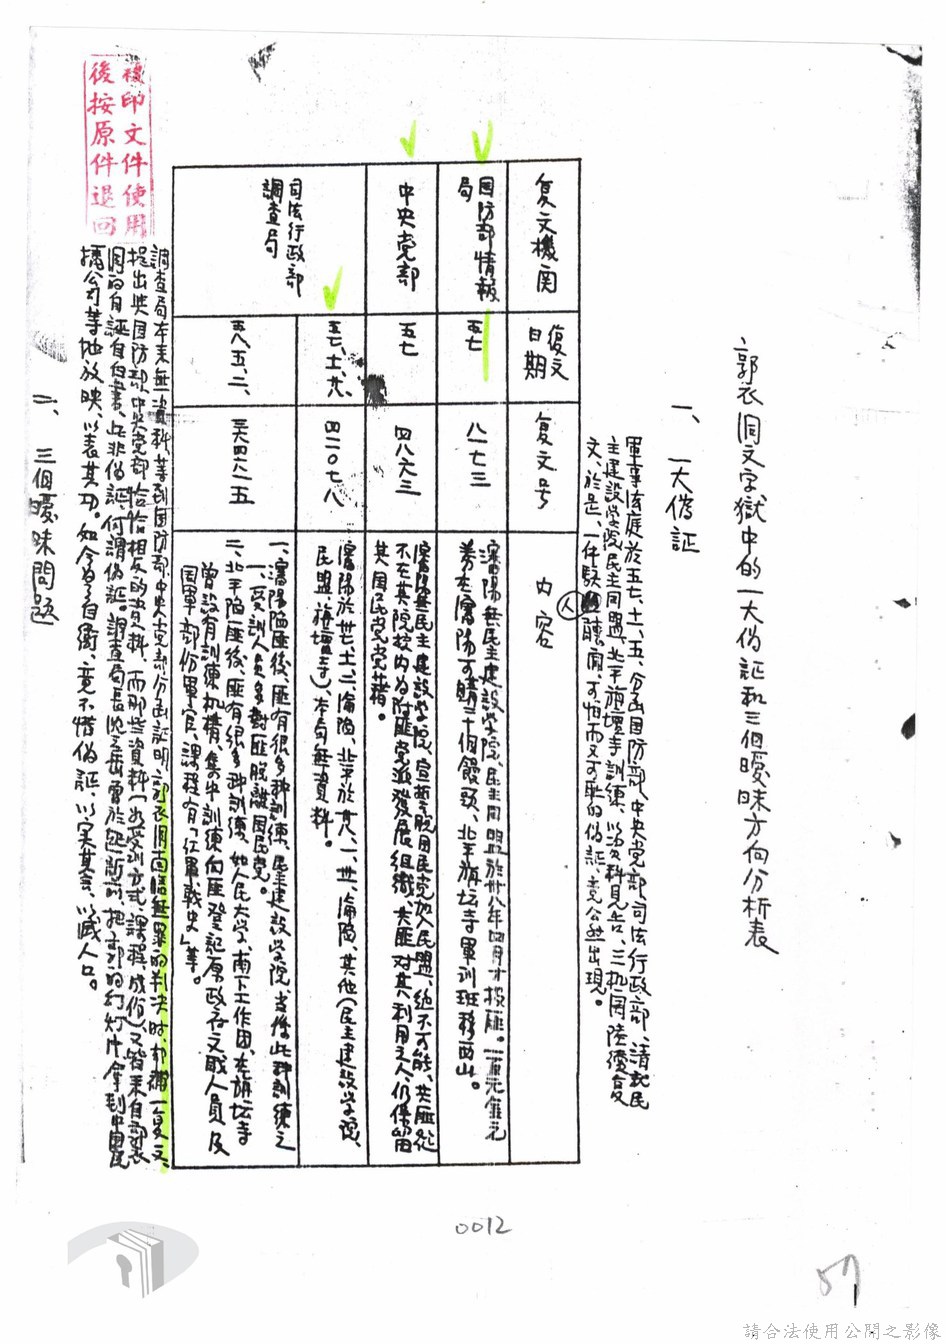 郭衣洞文字獄中的一大伪証和三個曖昧方向分析表
一、一大偽証
軍事法庭於五七、十一、五、分函国防部、中央党部、司法行政部、請就民
主建設学院、民主同盟、北平旃壇寺訓練、以資料見告、三机関陸續復
文、於是、一件駭人聽聞、可怕而又可恥的伪証、竟公然出現。
复文機関
復文日期
复文号
内容
国防部情報局
五七
八一七三
瀋陽無民主建設学院、民主同盟於卅八年四月才投匪。一百元金元
券在瀋陽可購二十個饅頭、北平旃坛寺軍訓班移西山。
中央党部
五七
四八六三
瀋陽無民主建設学院、宣誓脫国民党加入民盟、絕不可能、共匪絕
不在其院校内为附匪党派發展組織、共匪对其利用之人、仍保留
其国民党党藉。
司法行政部調查局
五七、十一、廿八、
四二〇七八
瀋陽於卅七、十一、二、淪陷、北平於廿八、一、卅一、淪陷、其他(民主建設学院、
民盟、旃壇寺)、本局無資料。
五八、五、二、
三六四六二五
一、瀋陽陷匪後、匪有很多种訓練、民主建設学院、当係此种訓練之
一、受訓人員多对匪脫離国民党。
二、北平陷匪後、匪有很多种訓練、如人民大学、南下工作団、在旃坛寺
曾設有訓練机構、集中訓練向匪登記原政府文职人員及
国軍部份軍官、課程有「紅軍戰史」等。
調查局本来無資料、等到国防部中央党部分函証明、郭衣洞面臨無罪的判决时、却補一复文、
提出與国防部、中央党部恰恰相反的資料、而那些資料(如受訓方式、課程、成份)、又皆来自郭衣
洞的自誣自白書、此非伪証、何謂伪証。調查局長沈之岳曾於起訴前、把郭的幻灯片拿到中国民
播公司等地放映、以表其功。如今为了自衛、竟不惜伪証、以实其会、以滅人口。
二、三個曖昧問題
複印文件使用
後按原件退回
0012
57
請合法使用公開之影像